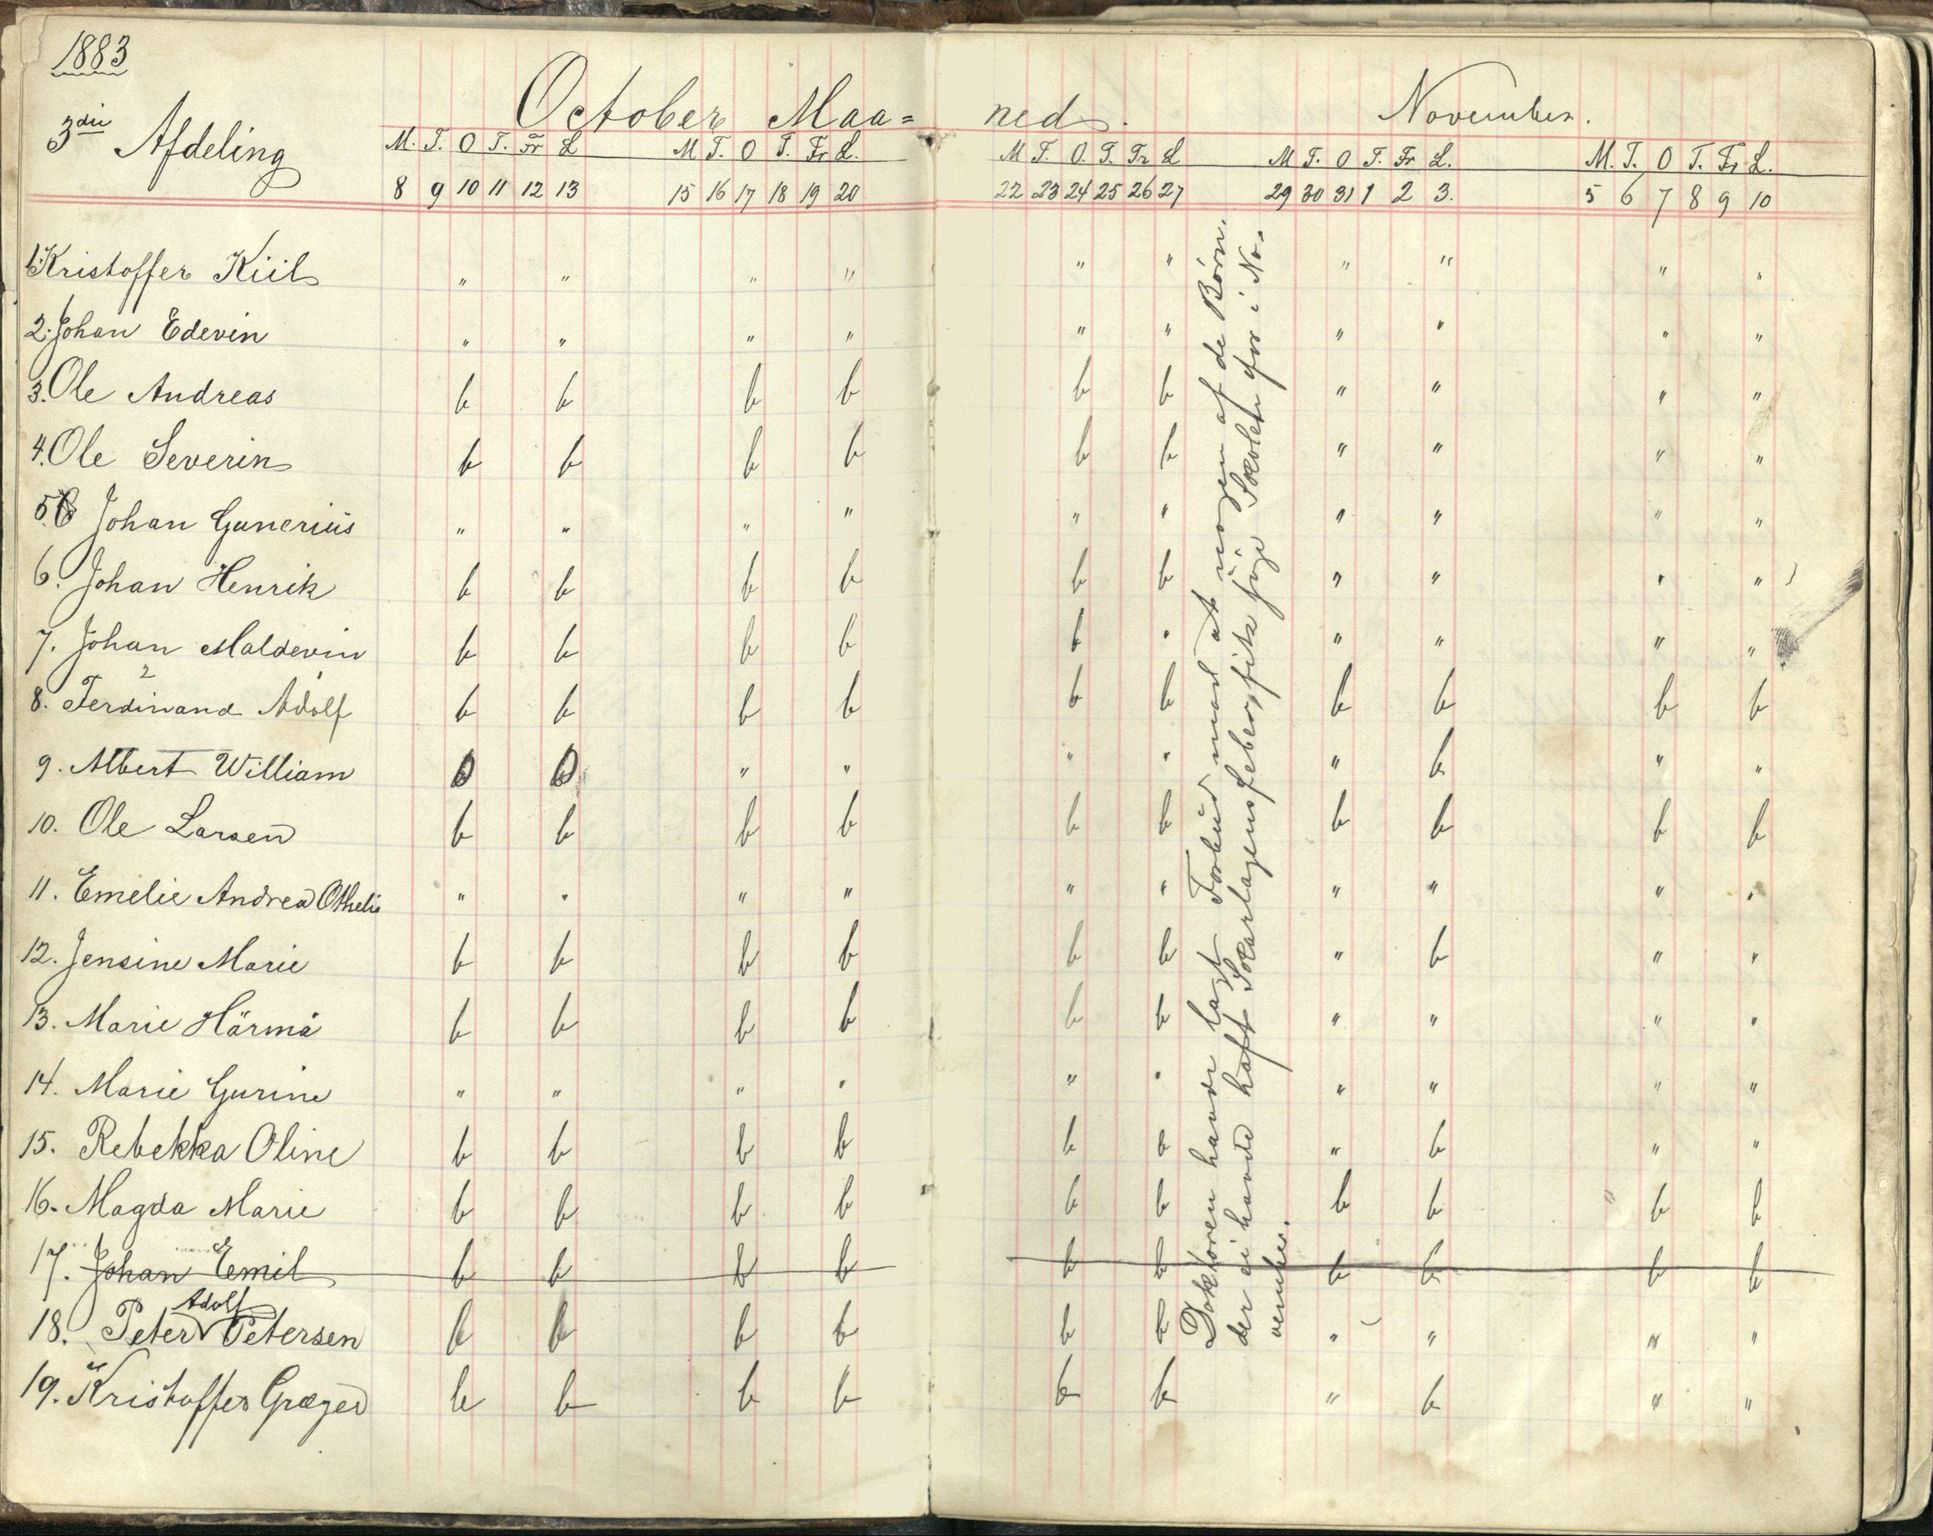 1883
3die Afdeling
October Maa=
M. T. O T. Fr L M T. O T. Fr L.
8 9 10 11 12 13 15 16 17 18 19 20
1. Kristoffer Kiil " " " "
2. Johan Edevin " " " "
3. Ole Andreas b b b b
4. Ole Severin b b b b
5. Johan Gunerius " " " "
6. Johan Henrik b b b b
7. Johan Maldevin b b b b
2
8. Ferdinand Adolf b b b b
9. Albert William " "
10. Ole Larsen b b b b
11. Emelie Andrea Othelie " " " "
12. Jensine Marie b b b b
13. Marie Härmä b b b b
14. Marie Gurine " " " "
15. Rebekka Oline b b b b
16. Magda Marie b b b b
17. Johan Emil b b b b
Adolf
18. Peter Petersen b b b b
19. Kristoffer Græger b b b b
ned.
November.
M T. O. T. Fr L M T. O T. Fr L. M. T. O T. Fr L.
22 23 24 25 26 27 29 30 31 1 2 3. 5 6 7 8 9 10
" " " " " "
" " " " " "
b b " " " "
b b " " " "
" " " " " "
b b " " " "
b " " " " "
b b b b b b
" " " b " "
b b b b b b
" " " " " "
b b " b " "
b b " " " "
" " " " " "
b b " b " "
b b b b b b
b b b b b b
b b " " " "
b b " b " "
Doktoren havde lagt Forbud mod at nogen af de Børn,
der ei havde haft Skarlagensfeber, fik søge Skolen før i No-
vember.